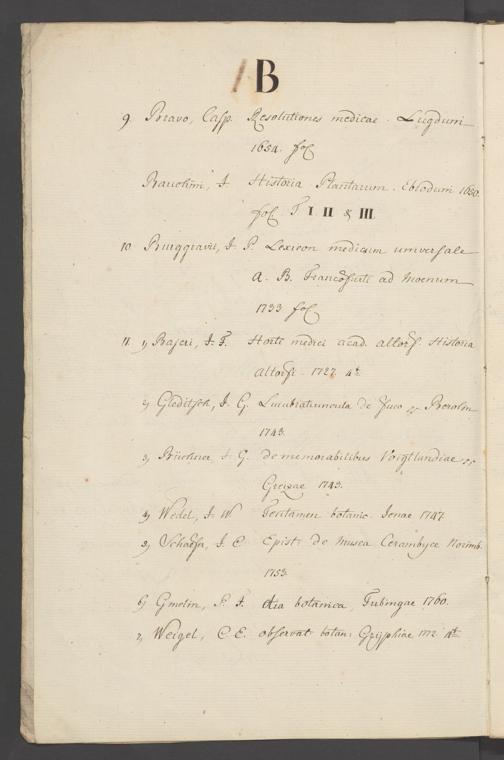 B
9 Bravo, Casp. Resolutiones medicae. Lugduni
1654. fol
Bauchini, J. Historia Plantarum. Ebroduni 1650.
fol. T I II & III
10 Burggravii, J. P. Lexicon medicum universale
A. B. Francofurti ad Moenum
1733 fol
11. 1) Bajeri, J. J. Horti medici acad. altorf. Historia
Altorfi. 1727. 4t.
2) Gleditsch, J. G. Lucubratiuncula de fuco Berolin
1743.
3) Büchner, J. G. de memorabilibus Voigtlandiae
Greizae 1743.
4) Wedel, J. W Tentamen botanic. Jenae 1747.
5) Schaefer, J. C. Epist. de Musca Cerambyce Norimb.
1753.
6) Gmelin, P. F. Otia botanica, Tubingae 1760.
7) Weigel, C. E. observat botan: Gryphiae 1772 4t.